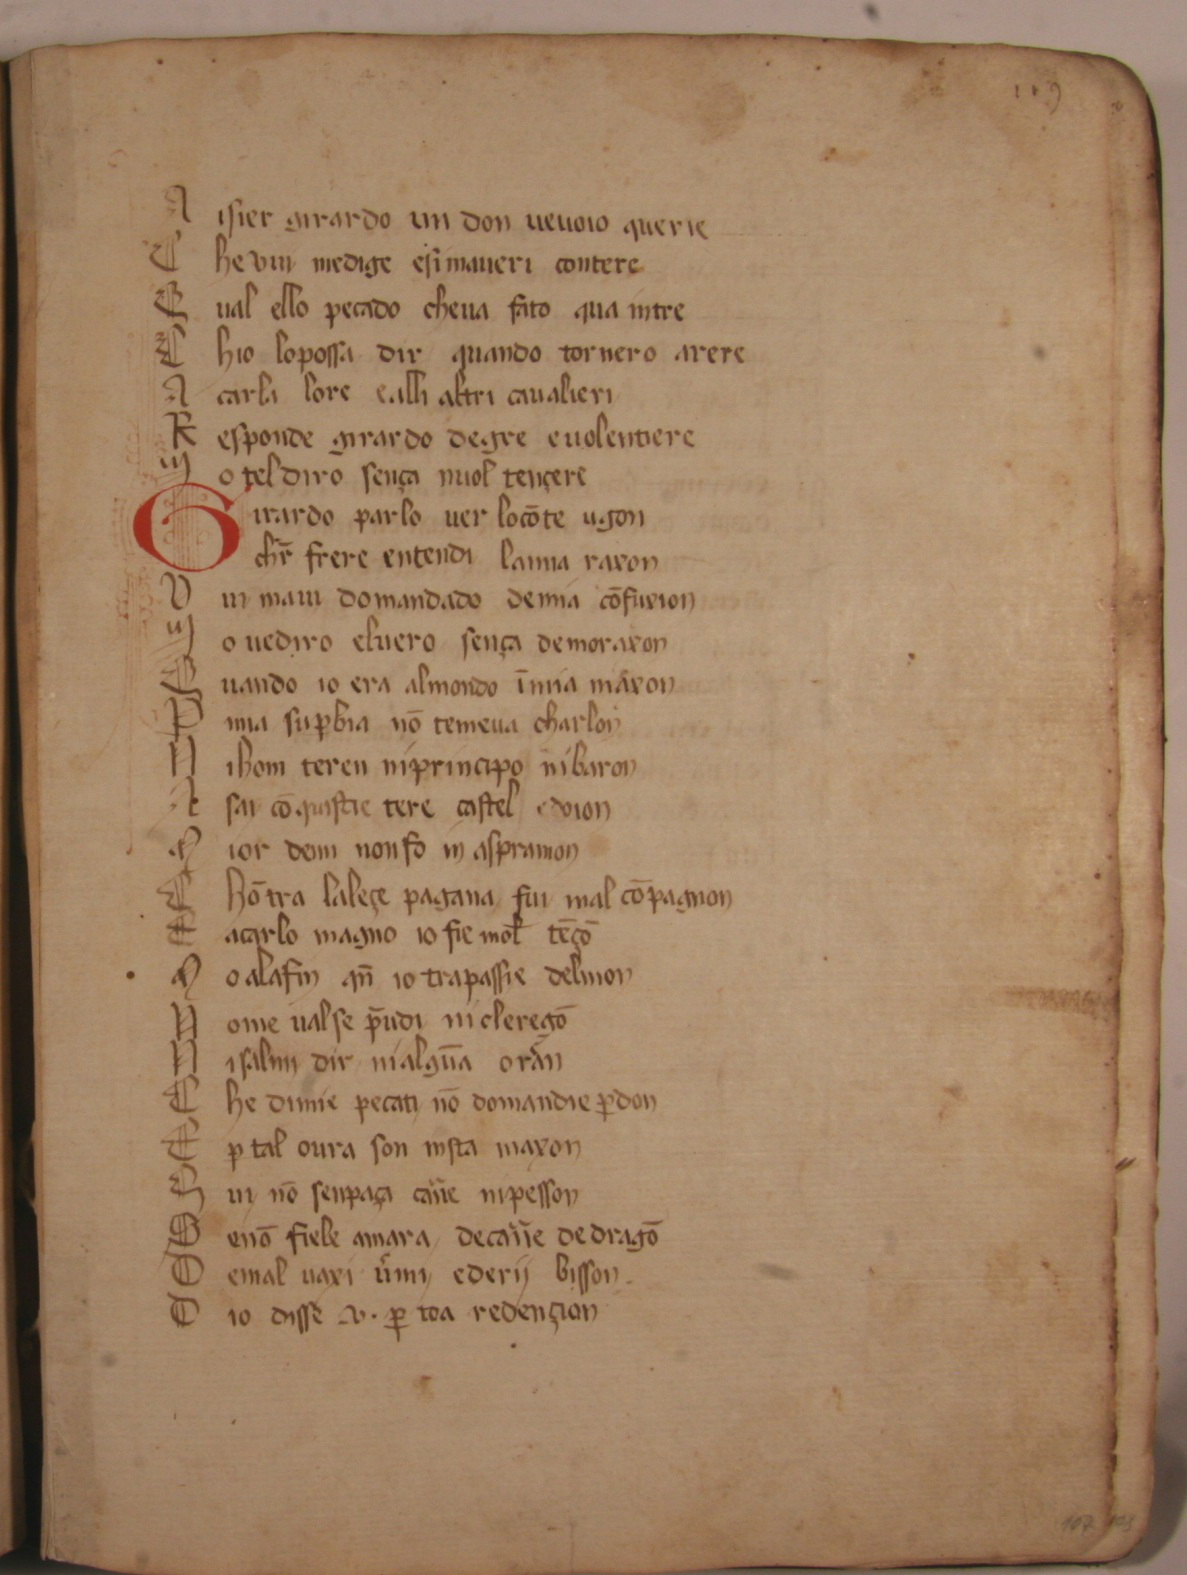 119
A isier girardo un don ueuoio querir
C he vui medige esimaueri contere
Q ual ello pecado cheua fato qua intre
C hio lopossa dir quando tornero arere
A carla lore ealli altri caualieri
R esponde girardo degre euolentiere
Io tel diro sença nuol tençere
Girardo parlo uer locōte ugon
frere entendi lamia raxon
V ui maui domandado demia cōfuxion
Io uediro eluero sença demoraxon
Q uando io era almondo ī mia māxon
P mia sup̄bia nō temeua charlon
N i hom teren ni principo ni baron
A sai cō quistie tere castel edoion
M ior demi non fo in aspramon
C hōtra laleçe pagana fui mal cōpagnon
E acarlo magno io fie molt tēçō
M o alafin qn̄ io trapassie delmon
N ome ualse p̄udi ni cleregō
N i salmi dir ni algūa orān
C he dimie pecati nō domandie p̄don
E p tal oura son insta maxon
Q ui nō senpaça carne ni pesson
S enō fiele amara decarne de dragō
D emal uaxi ū mi ederij bisson
D io disse v. p toa redençion
107